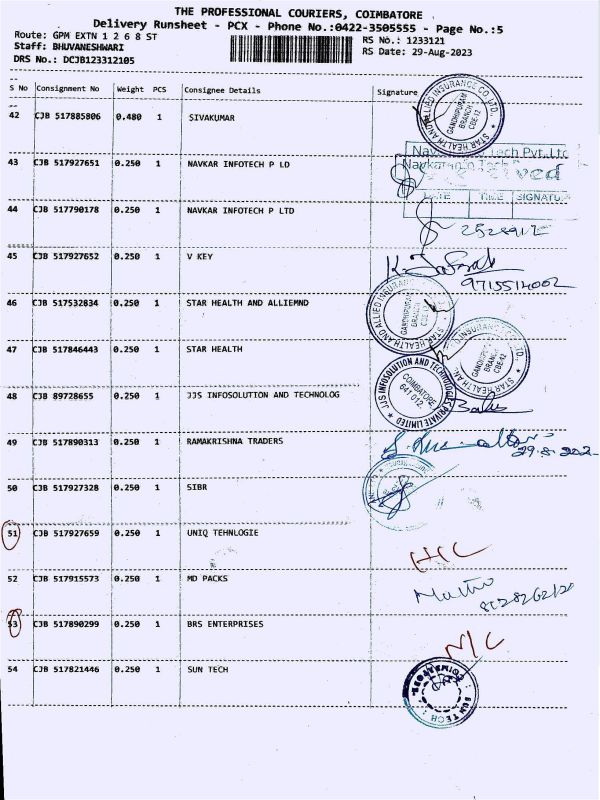 THE PROFESSIONAL COURIERS, COIMBATORE
Delivery Runsheet - PCX - Phone No.:0422-3505555 - Page No.:5
Route: GPM EXTN 1 2 6 8 ST
RS No.: 1233121
Staff: BHUVANESHWARI
RS Date: 29-Aug-2023
DRS No.: DCJB123312105
S No Consignment No Weight PCS Consignee Details Signature
42 CJB 517885806 0.480 1 SIVAKUMAR
STAR HEALTH AND ALLIED INSURANCE CO. LTD.
GANDHIPURAM
BRANCH
CBE-12
43 CJB 517927651 0.250 1 NAVKAR INFOTECH P LD
DATE TIME SIGNATU
44 CJB 517790178 0.250 1 NAVKAR INFOTECH P LTD
45 CJB 517927652 0.250 1 V KEY
9715514002
46 CJB 517532834 0.250 1 STAR HEALTH AND ALLIEMND
STAR HEALTH AND ALLIED INSURANCE
GANDHIPURAM
BRANCH
CBE-12
47 CJB 517846443 0.250 1 STAR HEALTH
48 CJB 89728655 0.250 1 JJS INFOSOLUTION AND TECHNOLOG
JJS INFOSOLUTION AND TECHNOLOGIES PRIVATE LIMITED
COIMBATORE
641 012.
49 CJB 517890313 0.250 1 RAMAKRISHNA TRADERS
50 CJB 517927328 0.250 1 SIBR
51 CJB 517927659 0.250 1 UNIQ TEHNLOGIE
52 CJB 517915573 0.250 1 MD PACKS
53 CJB 517890299 0.250 1 BRS ENTERPRISES
N/C
54 CJB 517821446 0.250 1 SUN TECH
SUN TECH